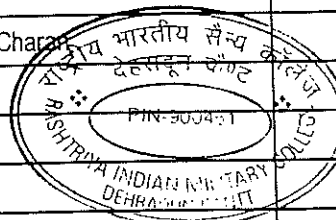 Charan
राष्ट्रीय भारतीय सैन्य कॉलेज
देहरादून कैण्ट
RASHTRIYA INDIAN MILITARY COLLEGE
DEHRADUN CANTT